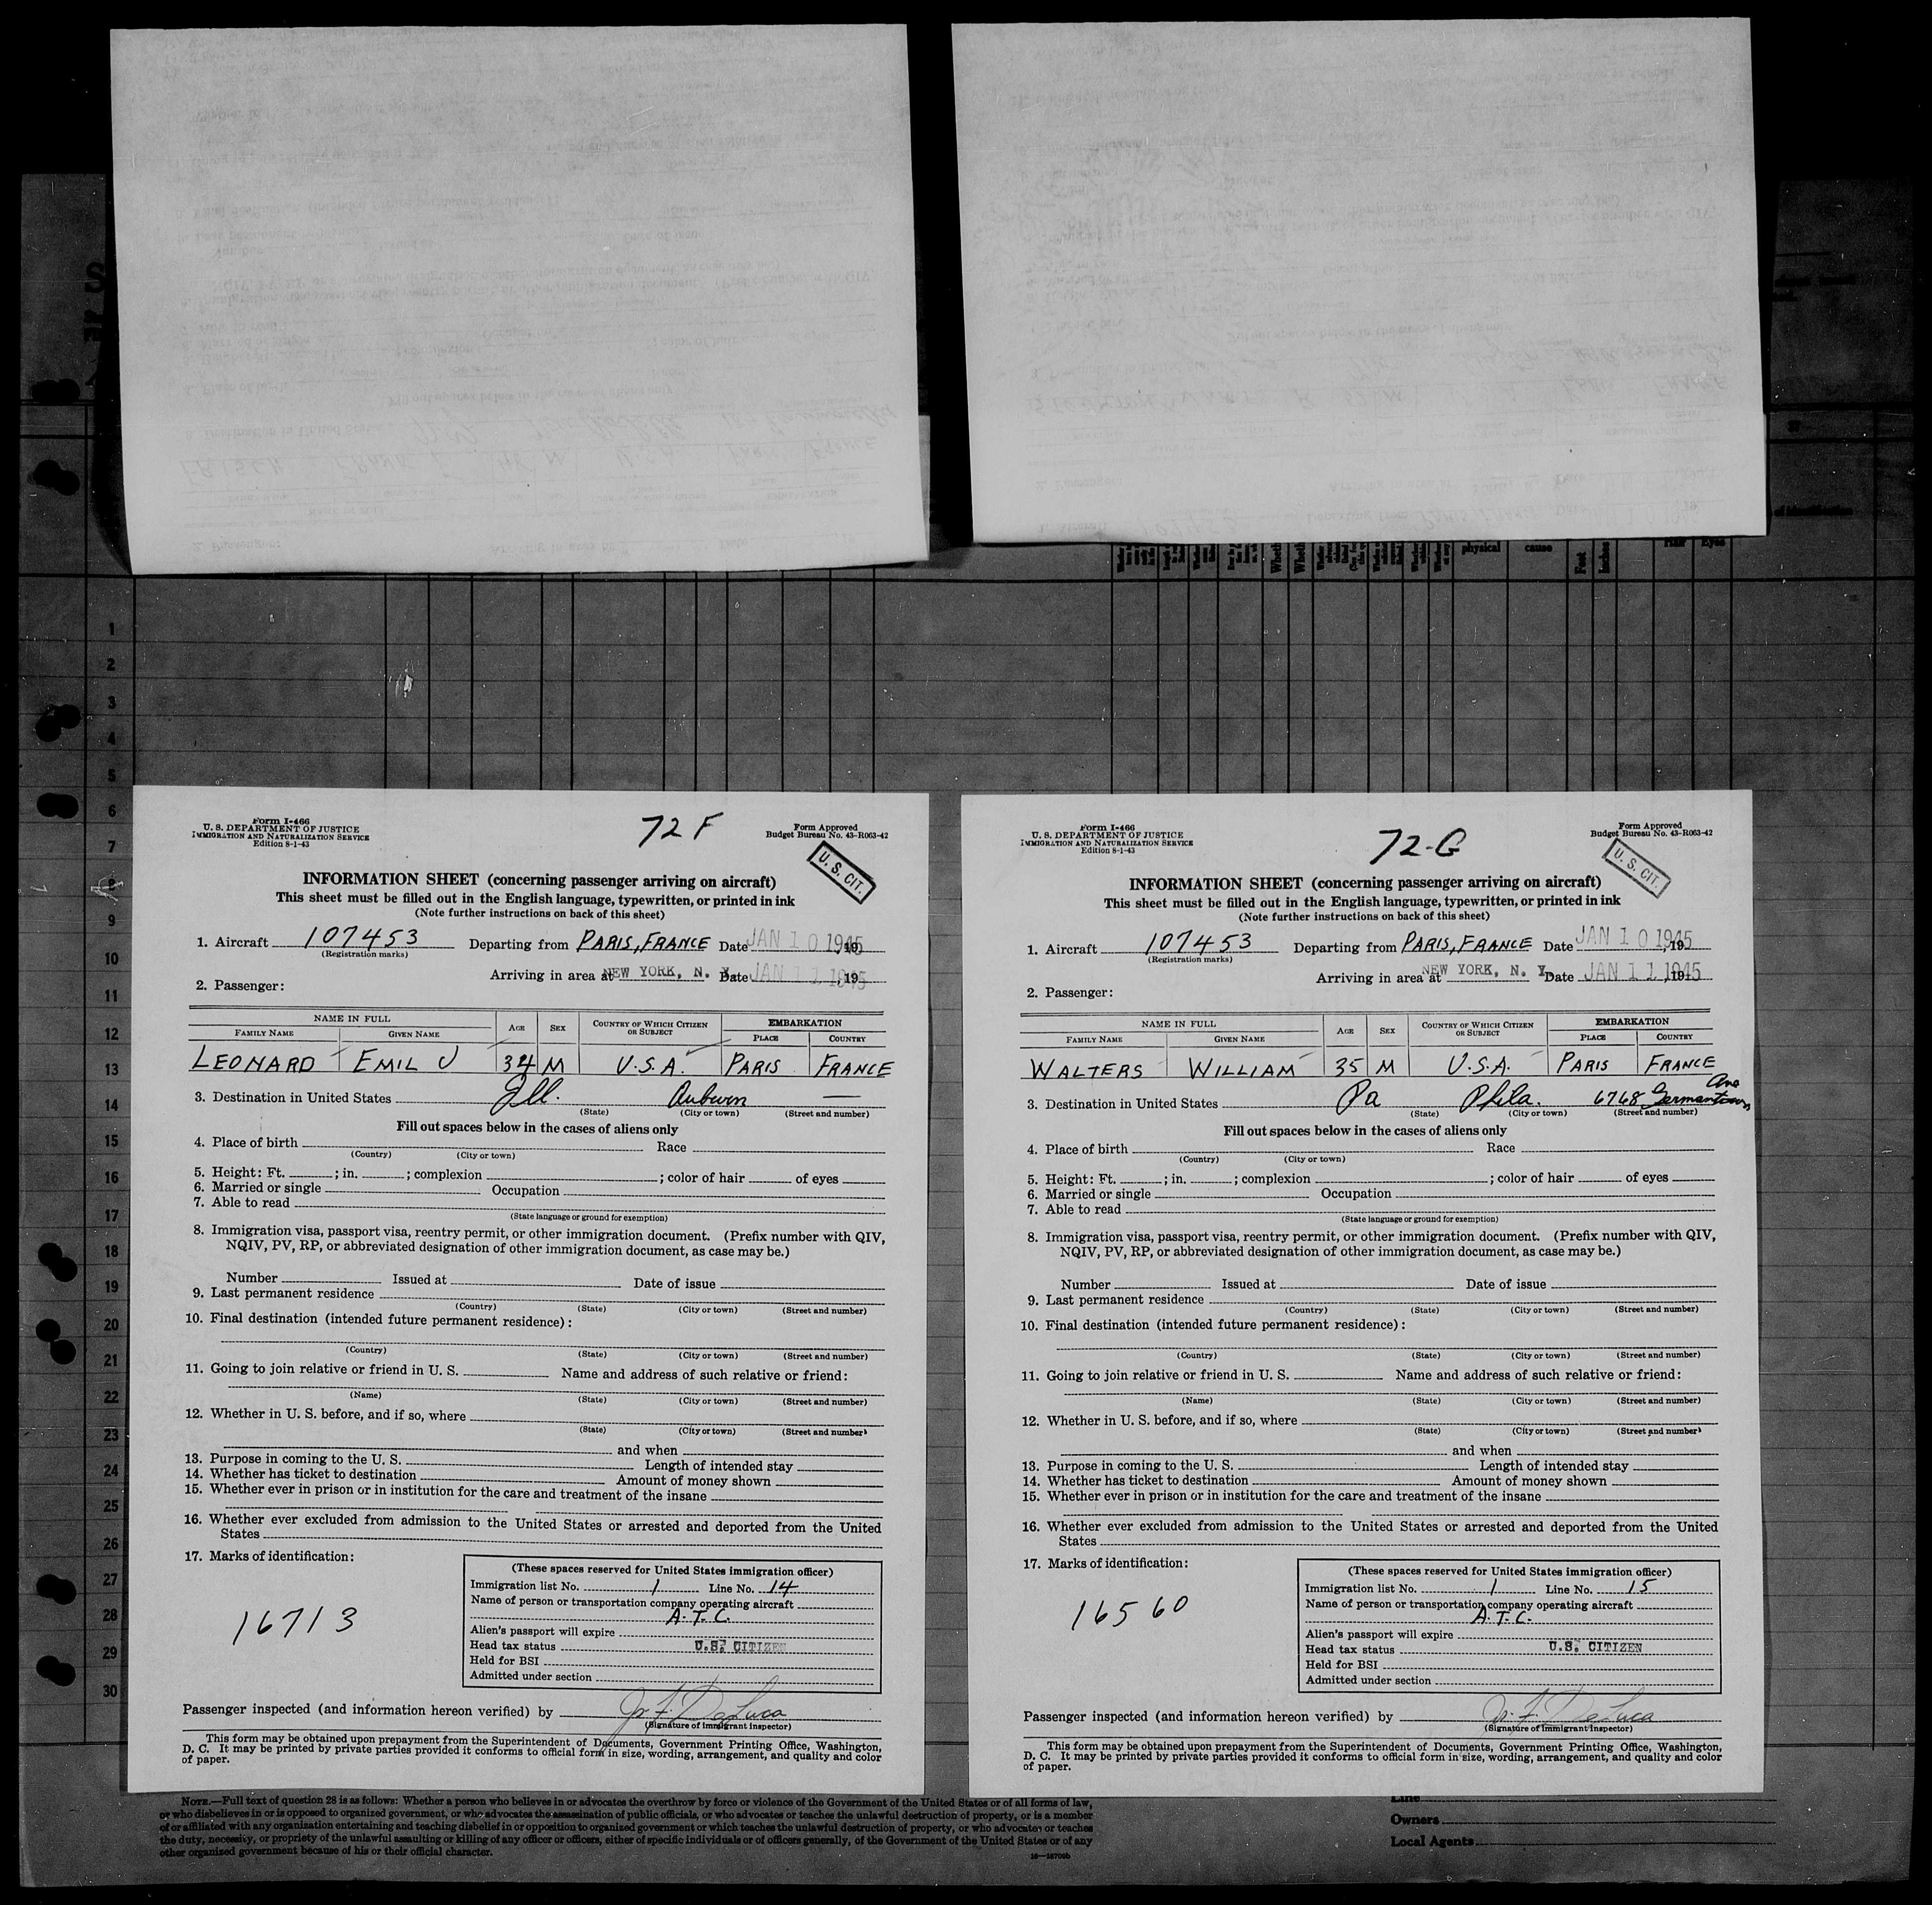 physical
cause
Feet
Inches
Hair
Eyes
1
2
3
4
5
6
7
8
9
10
11
12
13
14
15
16
17
18
19
20
21
22
23
24
25
26
27
28
29
30
Form I-466
U. S. DEPARTMENT OF JUSTICE
IMMIGRATION AND NATURALIZATION SERVICE
Edition 8-1-43
72 F
Form Approved
Budget Bureau No. 43-R063-42
U. S. CIT.
INFORMATION SHEET (concerning passenger arriving on aircraft)
This sheet must be filled out in the English language, typewritten, or printed in ink
(Note further instructions on back of this sheet)
1. Aircraft 107453 Departing from PARIS, FRANCE Date JAN 10 1945, 19
(Registration marks)
Arriving in area at NEW YORK, N. Y. Date JAN 11 1945, 19
2. Passenger:
NAME IN FULL AGE SEX COUNTRY OF WHICH CITIZEN OR SUBJECT EMBARKATION
FAMILY NAME GIVEN NAME PLACE COUNTRY
LEONARD EMIL J 34 M U.S.A. PARIS FRANCE
3. Destination in United States Ill. Auburn —
(State) (City or town) (Street and number)
Fill out spaces below in the cases of aliens only
4. Place of birth Race
(Country) (City or town)
5. Height: Ft. ; in. ; complexion ; color of hair of eyes
6. Married or single Occupation
7. Able to read
(State language or ground for exemption)
8. Immigration visa, passport visa, reentry permit, or other immigration document. (Prefix number with QIV,
NQIV, PV, RP, or abbreviated designation of other immigration document, as case may be.)
Number Issued at Date of issue
9. Last permanent residence
(Country) (State) (City or town) (Street and number)
10. Final destination (intended future permanent residence):
(Country) (State) (City or town) (Street and number)
11. Going to join relative or friend in U. S. Name and address of such relative or friend:
(Name) (State) (City or town) (Street and number)
12. Whether in U. S. before, and if so, where
(State) (City or town) (Street and number)
and when
13. Purpose in coming to the U. S. Length of intended stay
14. Whether has ticket to destination Amount of money shown
15. Whether ever in prison or in institution for the care and treatment of the insane
16. Whether ever excluded from admission to the United States or arrested and deported from the United
States
17. Marks of identification:
16713
(These spaces reserved for United States immigration officer)
Immigration list No. 1 Line No. 14
Name of person or transportation company operating aircraft
A.T.C.
Alien's passport will expire
Head tax status U.S. CITIZEN
Held for BSI
Admitted under section
Passenger inspected (and information hereon verified) by Jr. F. DeLuca
(Signature of immigrant inspector)
This form may be obtained upon prepayment from the Superintendent of Documents, Government Printing Office, Washington,
D. C. It may be printed by private parties provided it conforms to official form in size, wording, arrangement, and quality and color
of paper.
Form I-466
U. S. DEPARTMENT OF JUSTICE
IMMIGRATION AND NATURALIZATION SERVICE
Edition 8-1-43
72-G
Form Approved
Budget Bureau No. 43-R063-42
U. S. CIT.
INFORMATION SHEET (concerning passenger arriving on aircraft)
This sheet must be filled out in the English language, typewritten, or printed in ink
(Note further instructions on back of this sheet)
1. Aircraft 107453 Departing from PARIS, FRANCE Date JAN 10 1945, 19
(Registration marks)
Arriving in area at NEW YORK, N. Y. Date JAN 11 1945, 19
2. Passenger:
NAME IN FULL AGE SEX COUNTRY OF WHICH CITIZEN OR SUBJECT EMBARKATION
FAMILY NAME GIVEN NAME PLACE COUNTRY
WALTERS WILLIAM 35 M U.S.A. PARIS FRANCE
3. Destination in United States Pa Phila. 6768 Germantown Ave
(State) (City or town) (Street and number)
Fill out spaces below in the cases of aliens only
4. Place of birth Race
(Country) (City or town)
5. Height: Ft. ; in. ; complexion ; color of hair of eyes
6. Married or single Occupation
7. Able to read
(State language or ground for exemption)
8. Immigration visa, passport visa, reentry permit, or other immigration document. (Prefix number with QIV,
NQIV, PV, RP, or abbreviated designation of other immigration document, as case may be.)
Number Issued at Date of issue
9. Last permanent residence
(Country) (State) (City or town) (Street and number)
10. Final destination (intended future permanent residence):
(Country) (State) (City or town) (Street and number)
11. Going to join relative or friend in U. S. Name and address of such relative or friend:
(Name) (State) (City or town) (Street and number)
12. Whether in U. S. before, and if so, where
(State) (City or town) (Street and number)
and when
13. Purpose in coming to the U. S. Length of intended stay
14. Whether has ticket to destination Amount of money shown
15. Whether ever in prison or in institution for the care and treatment of the insane
16. Whether ever excluded from admission to the United States or arrested and deported from the United
States
17. Marks of identification:
16560
(These spaces reserved for United States immigration officer)
Immigration list No. 1 Line No. 15
Name of person or transportation company operating aircraft
A.T.C.
Alien's passport will expire
Head tax status U.S. CITIZEN
Held for BSI
Admitted under section
Passenger inspected (and information hereon verified) by Jr. F. DeLuca
(Signature of immigrant inspector)
This form may be obtained upon prepayment from the Superintendent of Documents, Government Printing Office, Washington,
D. C. It may be printed by private parties provided it conforms to official form in size, wording, arrangement, and quality and color
of paper.
NOTE.—Full text of question 28 is as follows: Whether a person who believes in or advocates the overthrow by force or violence of the Government of the United States or of all forms of law,
or who disbelieves in or is opposed to organized government, or who advocates the assassination of public officials, or who advocates or teaches the unlawful destruction of property, or is a member
of or affiliated with any organization entertaining and teaching disbelief in or opposition to organized government or which teaches the unlawful destruction of property, or who advocates or teaches
the duty, necessity, or propriety of the unlawful assaulting or killing of any officer or officers, either of specific individuals or of officers generally, of the Government of the United States or of any
other organized government because of his or their official character.
Line
Owners
Local Agents